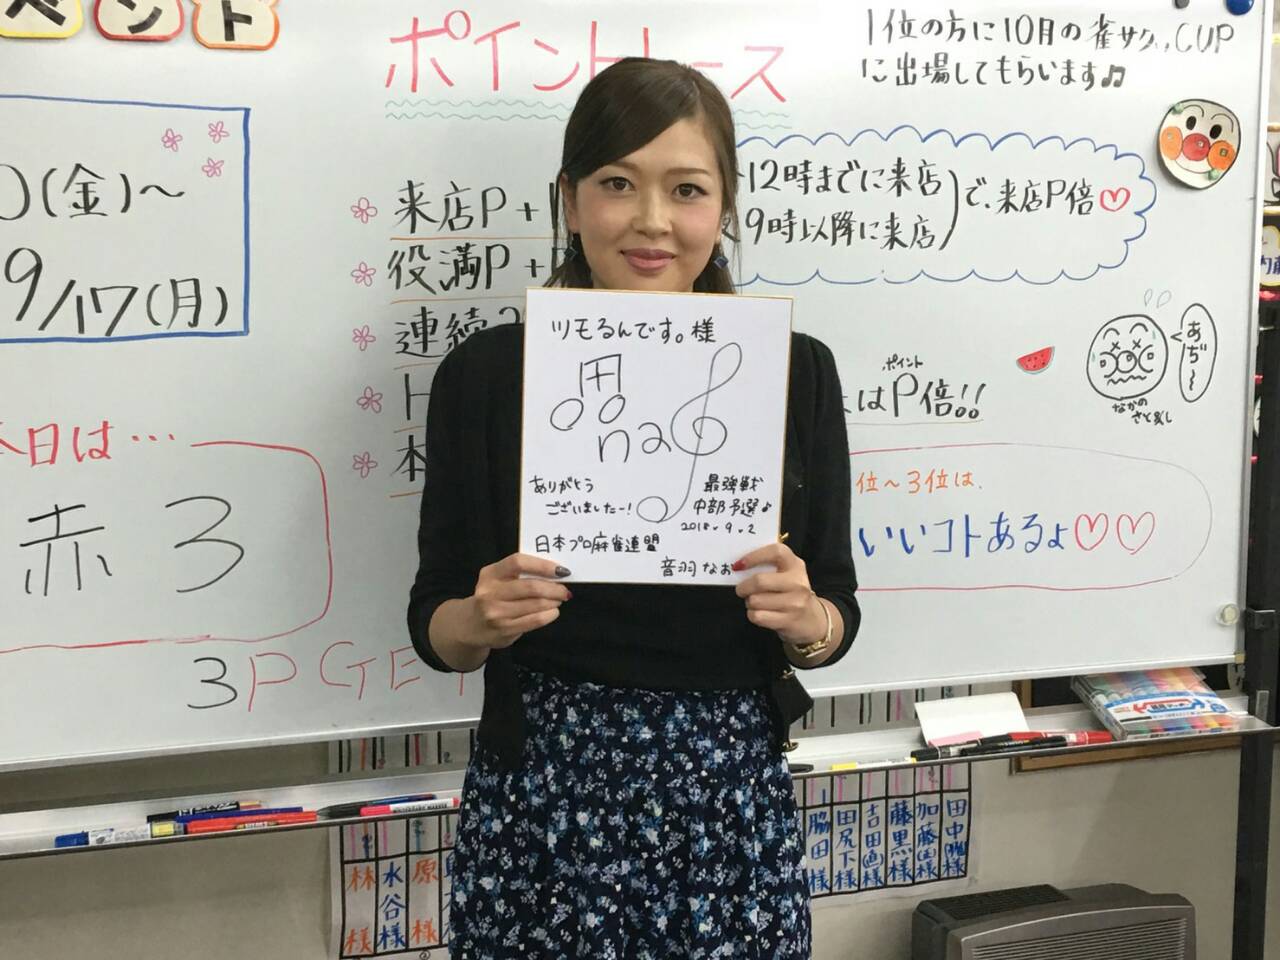 ベント
ポイントレース
1位の方に10月の雀サクッCUP
に出場してもらいます♫
(金)～
9/17(月)
来店P+
12時までに来店
9時以降に来店
で、来店P倍♡
役満P+
連続
は P倍!!
ポイント
あぢ～
なかの
本日は…
赤3
3P GET
位～3位は、
いいコトあるよ♡♡
ツモるんです。様
na
ありがとう
ございましたー!
最強戦
中部予選♪
2018.9.2
日本プロ麻雀連盟
音羽なお
林様
水谷様
原様
脇田様
田尻下様
吉田画様
藤黒様
加藤国様
田中雅様